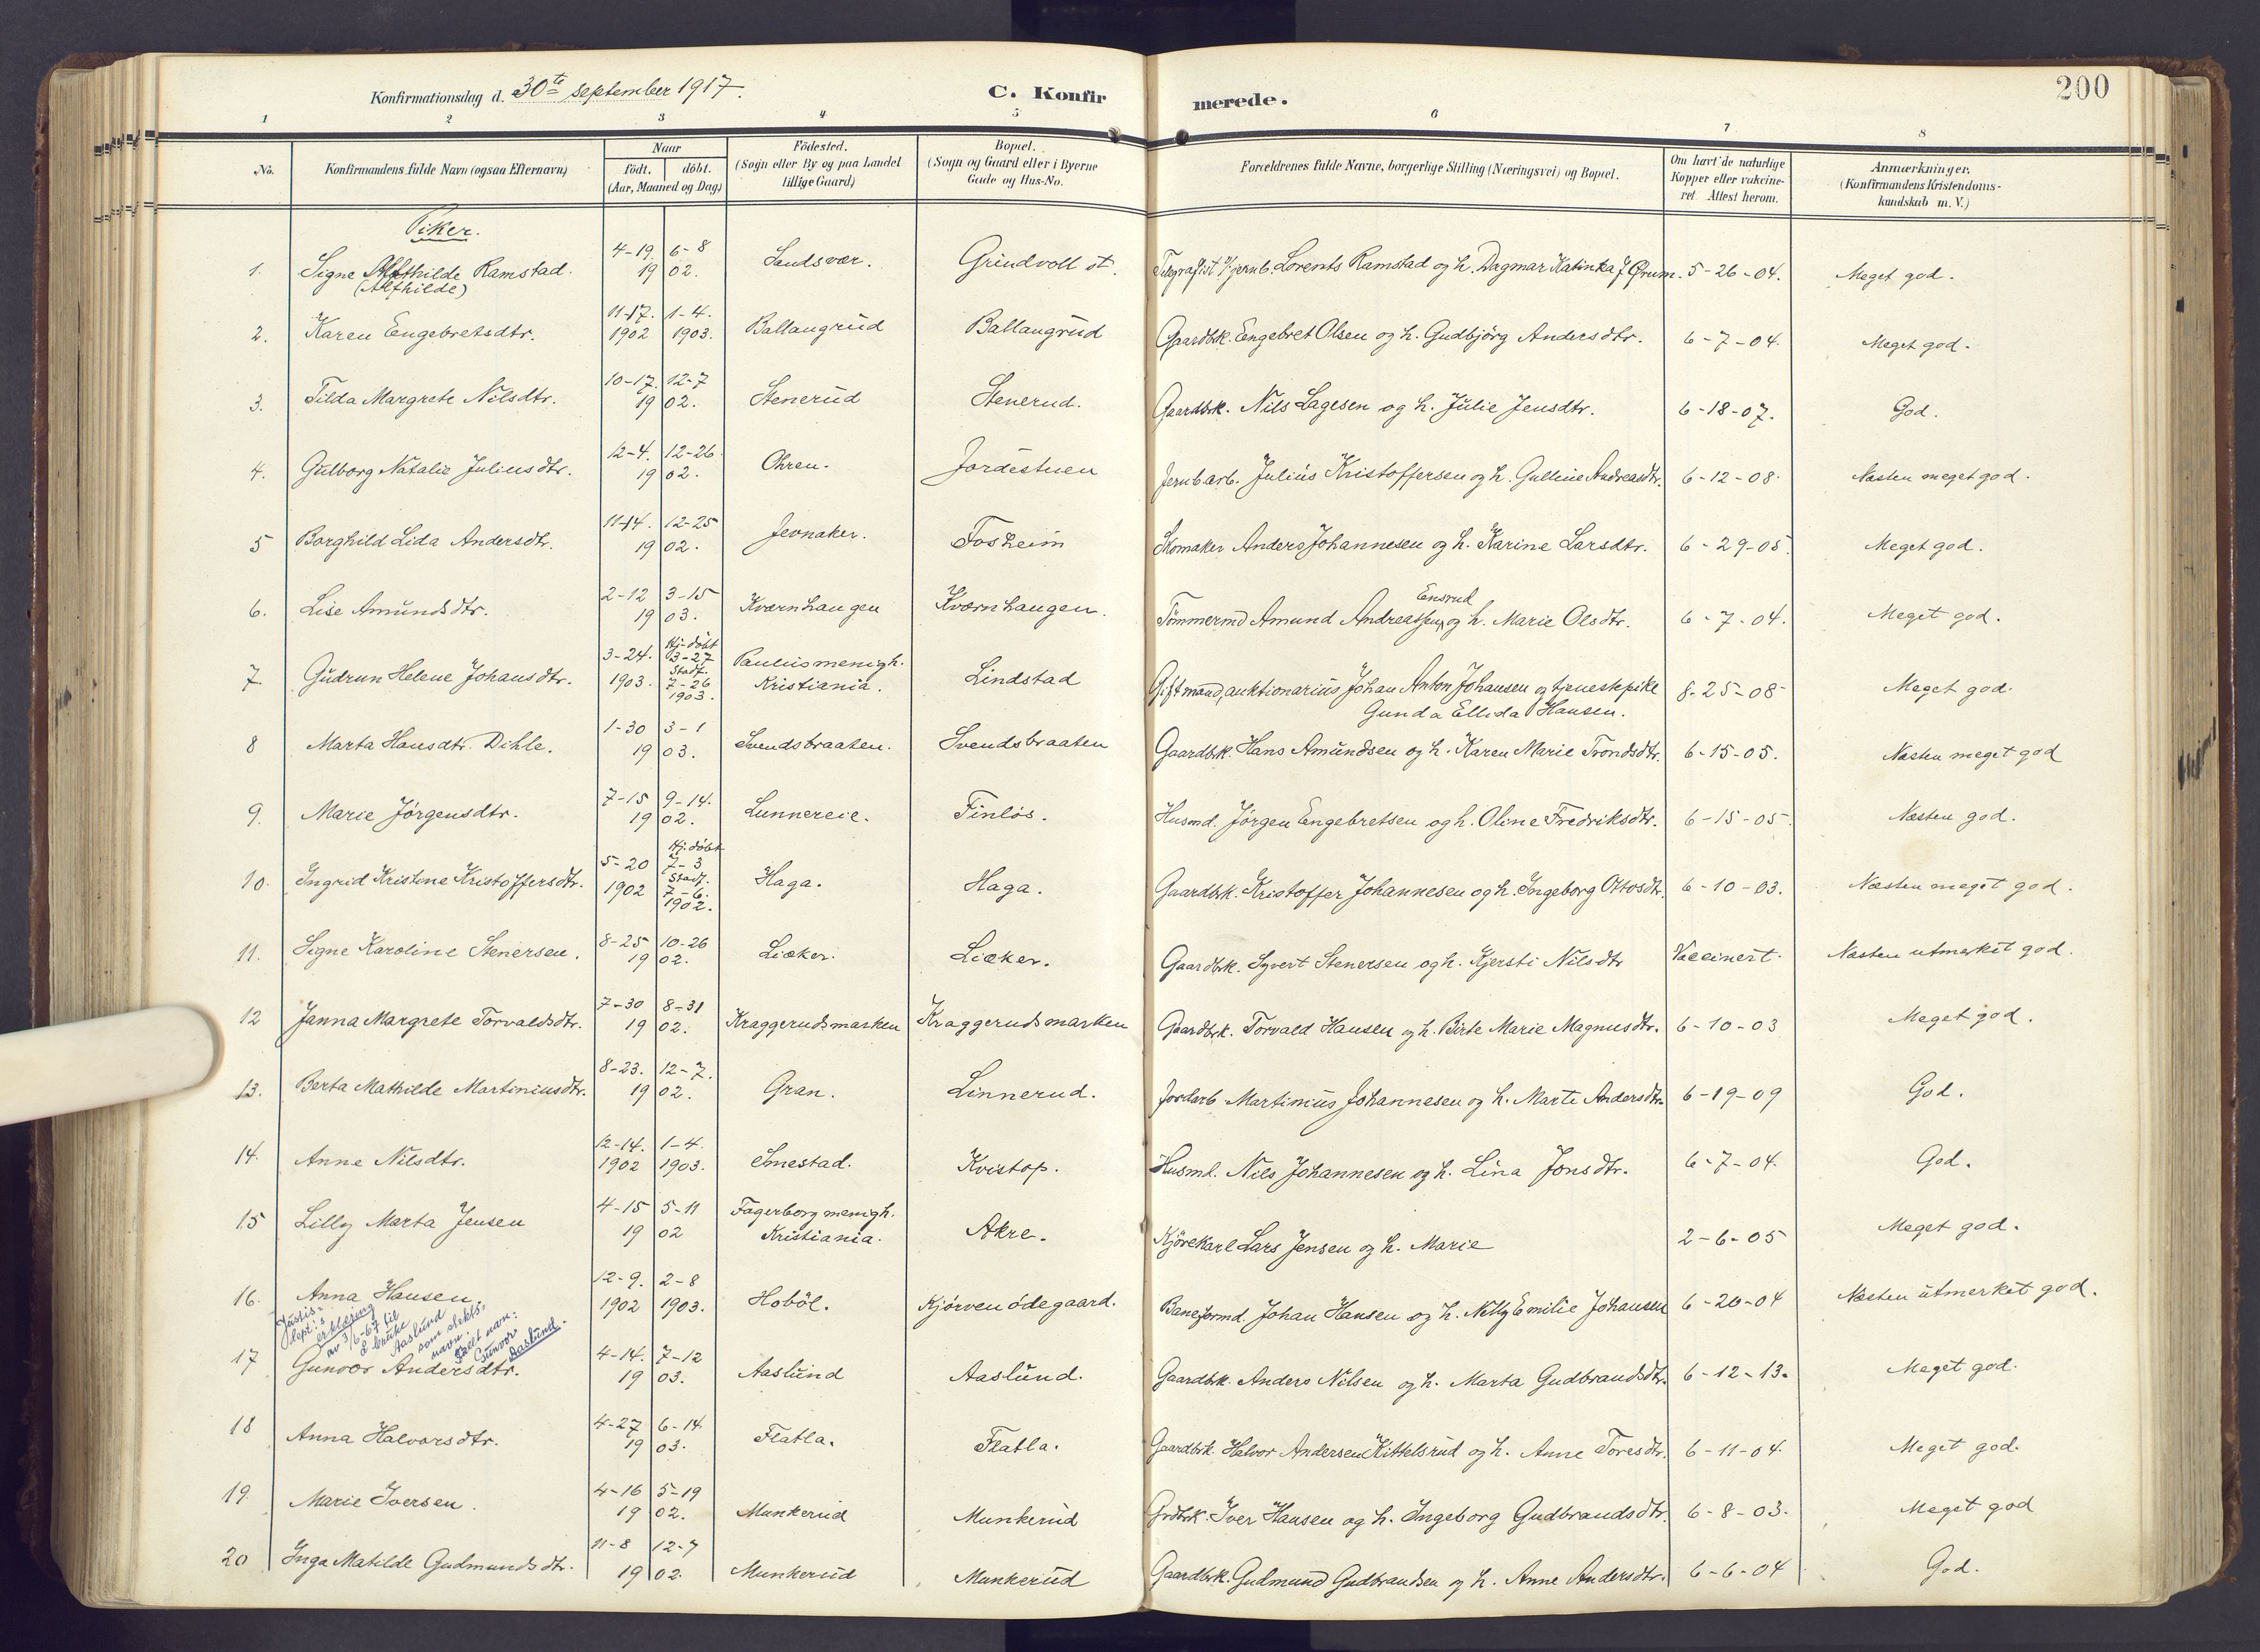 Konfirmationsdag d. 30te september 1917.
C. Konfirmerede.
200
1 2 3 4 5 6 7 8
No.
Konfirmandens fulde Navn (ogsaa Efternavn)
Naar
födt. döbt.
(Aar, Maaned og Dag)
Födested.
(Sogn eller By og paa Landet
tillige Gaard)
Bopæl.
(Sogn og Gaard eller i Byerne
Gade og Hus-No.
Forældrenes fulde Navne, borgerlige Stilling (Næringsvei) og Bopæl.
Om havt de naturlige
Kopper eller vakcine-
ret Attest herom.
Anmærkninger.
(Konfirmandens Kristendoms-
kundskab m. V.)
Piker.
1. Signe Alfthilde Ramstad. 4-19. 1902. 6-8 Sandsvær. Grindvoll st. Telegrafist v/jernb. Lorents Ramstad og h. Dagmar Katinka f. Ørum. 5-26-04. Meget god.
(Alfhilde)
2. Karen Engebretsdtr. 11-17. 1902 1-4. 1903. Ballangrud Ballangrud Gaardbk. Engebret Olsen og h. Gudbjörg Andersdtr. 6-7-04. Meget god.
3. Tilda Margrete Nilsdtr. 10-17. 12-7 1902. Stenerud Stenerud. Gaardbrk. Nils Lagesen og h. Julie Jensdtr. 6-18-07. God.
4. Gulborg Natalie Juliusdtr. 12-4. 12-26 1902. Ohren. Jordestuen Jernbarb. Julius Kristoffersen og h. Gulline Andreasdtr. 6-12-08. Næsten meget god.
5 Borghild Lida Andersdtr. 11-14. 12-25 1902. Jevnaker. Fosheim Skomaker Anders Johannesen og h. Karine Larsdtr. 6-29-05. Meget god.
6. Lise Amundsdtr. 2-12 3-15 1903. Kværnhaugen Kværnhaugen. Tömmermd Amund Andreassen og h. Marie Olsdtr. 6-7-04. Meget god.
Ensrud
7. Gudrun Helene Johansdtr. 3-24. 1903. Hj. döbt 3-27 Stadf. 7-26 1903. Paulus menigh. Kristiania. Lindstad Gift mand, auktionarius Johan Anton Johansen og tjenestepike 8-25-08 Meget god.
Gunda Ellida Hansen.
8 Marta Hansdtr. Dihle. 1-30 3-1 1903. Svendsbraaten. Svendsbraaten Gaardbk. Hans Amundsen og h. Karen Marie Trondsdtr. 6-15-05. Næsten meget god
9. Marie Jørgensdtr. 7-15 9-14. 1902. Lunnereie. Finlös. Husmd. Jørgen Engebretsen og h. Oline Fredriksdtr. 6-15-05. Næsten god.
10. Ingrid Kristine Kristoffersdtr. 5-20 1902 Hj. döbt 7-3 Stadf. 7-6. 1902. Haga. Haga. Gaardbrk. Kristoffer Johannesen og h. Ingeborg Ottosdtr. 6-10-03. Næsten meget god.
11. Signe Karoline Stenersen. 8-25 10-26 1902. Liøker. Liøker. Gaardbrk. Syvert Stenersen og h. Kjersti Nilsdtr Vaccinert. Næsten utmerket god.
12 Janna Margrete Torvaldsdtr. 7-30 8-31 1902. Kraggerudsmarken Kraggerudsmarken Gaardbrk. Torvald Hansen og h. Birte Marie Magnusdtr. 6-10-03 Meget god.
13. Berta Mathilde Martiniusdtr. 8-23. 12-7. 1902. Gran. Linnerud. Jordarb Martinius Johannesen og h. Marte Andersdtr. 6-19-09 God.
14. Anne Nilsdtr. 12-14. 1902 1-4. 1903. Smestad. Kvistop. Husmd. Nils Johannesen og h. Lina Jonsdtr. 6-7-04. God.
15 Lilly Marta Jensen 4-15 5-11 1902 Fagerborg menigh. Kristiania. Akre. Kjörekarl Lars Jensen og h. Marie 2-6-05 Meget god.
16. Anna Hansen. 12-9. 1902 2-8 1903. Hoböl. Kjörven ödegaard. Baneformd. Johan Hansen og h. Nelly Emilie Johansen 6-20-04 Næsten utmerket god.
Justis-
dept's
erklæring
av 3/6-67 til
å bruke
Aaslund
som slekts-
navn.
Fullt navn:
Gunvor
Aaslund.
17 Gunvor Andersdtr. 4-14. 7-12 1903. Aaslund Aaslund. Gaardbrk. Anders Nilsen og h. Marta Gudbrandsdtr. 6-12-13. Meget god.
18 Anna Halvorsdtr. 4-27 6-14. 1903. Flatla. Flatla. Gaardbrk. Halvor Andersen Kittelsrud og h. Anne Toresdtr. 6-11-04. Meget god.
19. Marie Iversen. 4-16 5-19 1902. Munkerud Munkerud Grdbrk. Iver Hansen og h. Ingeborg Gudbrandsdtr. 6-8-03. Meget god
20 Inga Matilde Gudmundsdtr. 11-8 12-7 1902. Munkerud Munkerud Gaardbrk. Gudmund Gudbrandsen og h. Anne Andersdtr. 6-6-04 God.